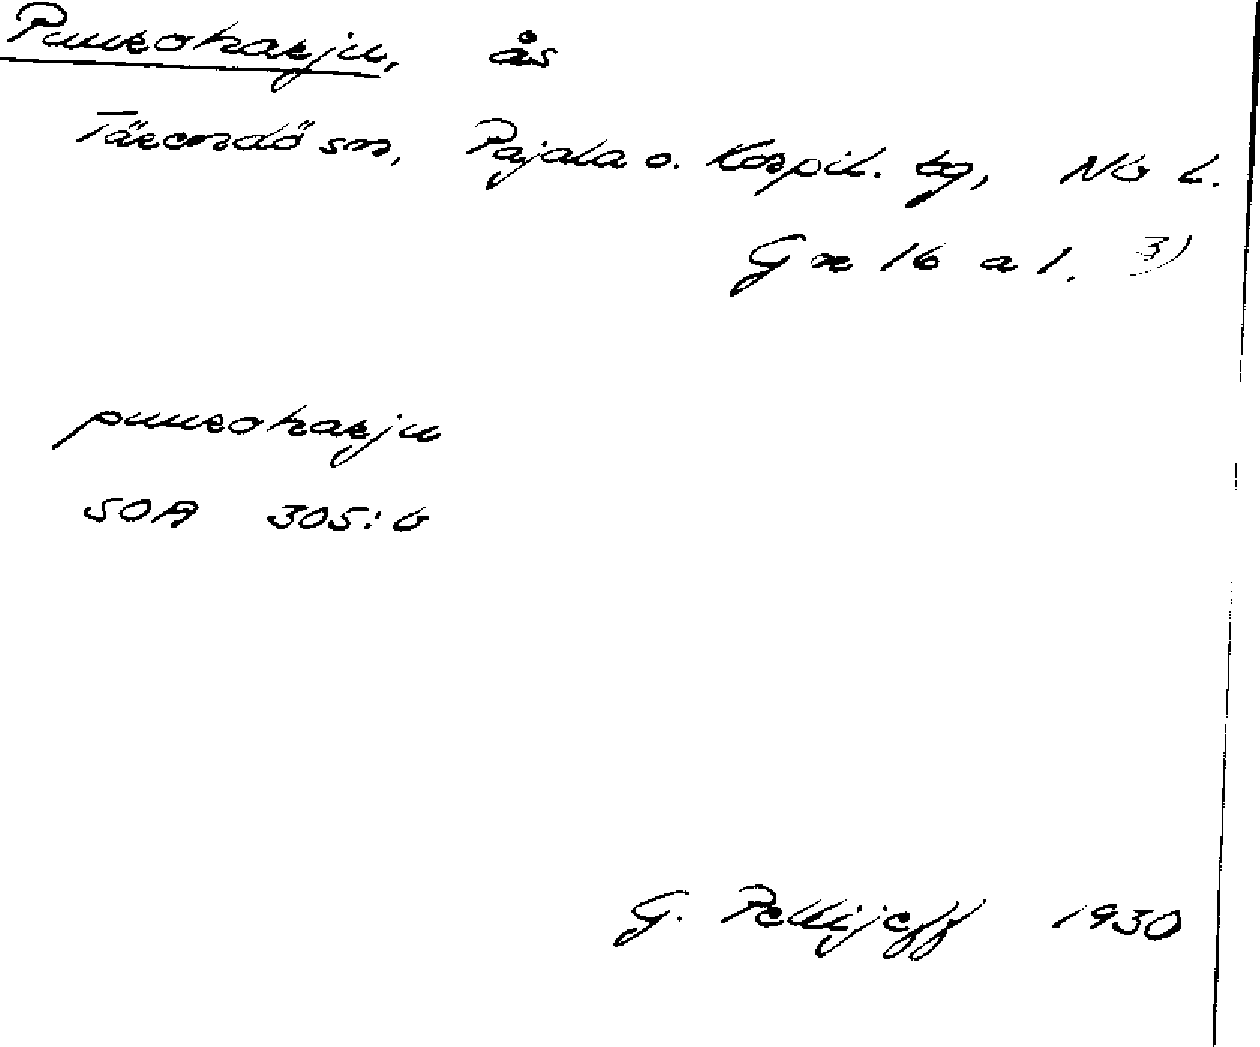 Puuroharju, ås
Tärendö sn, Pajala o. Korpil. tg, Nb l.
Gr 16 a 1. 3)
puuroharju
SOA 305: 6
G. Pellijeff 1930